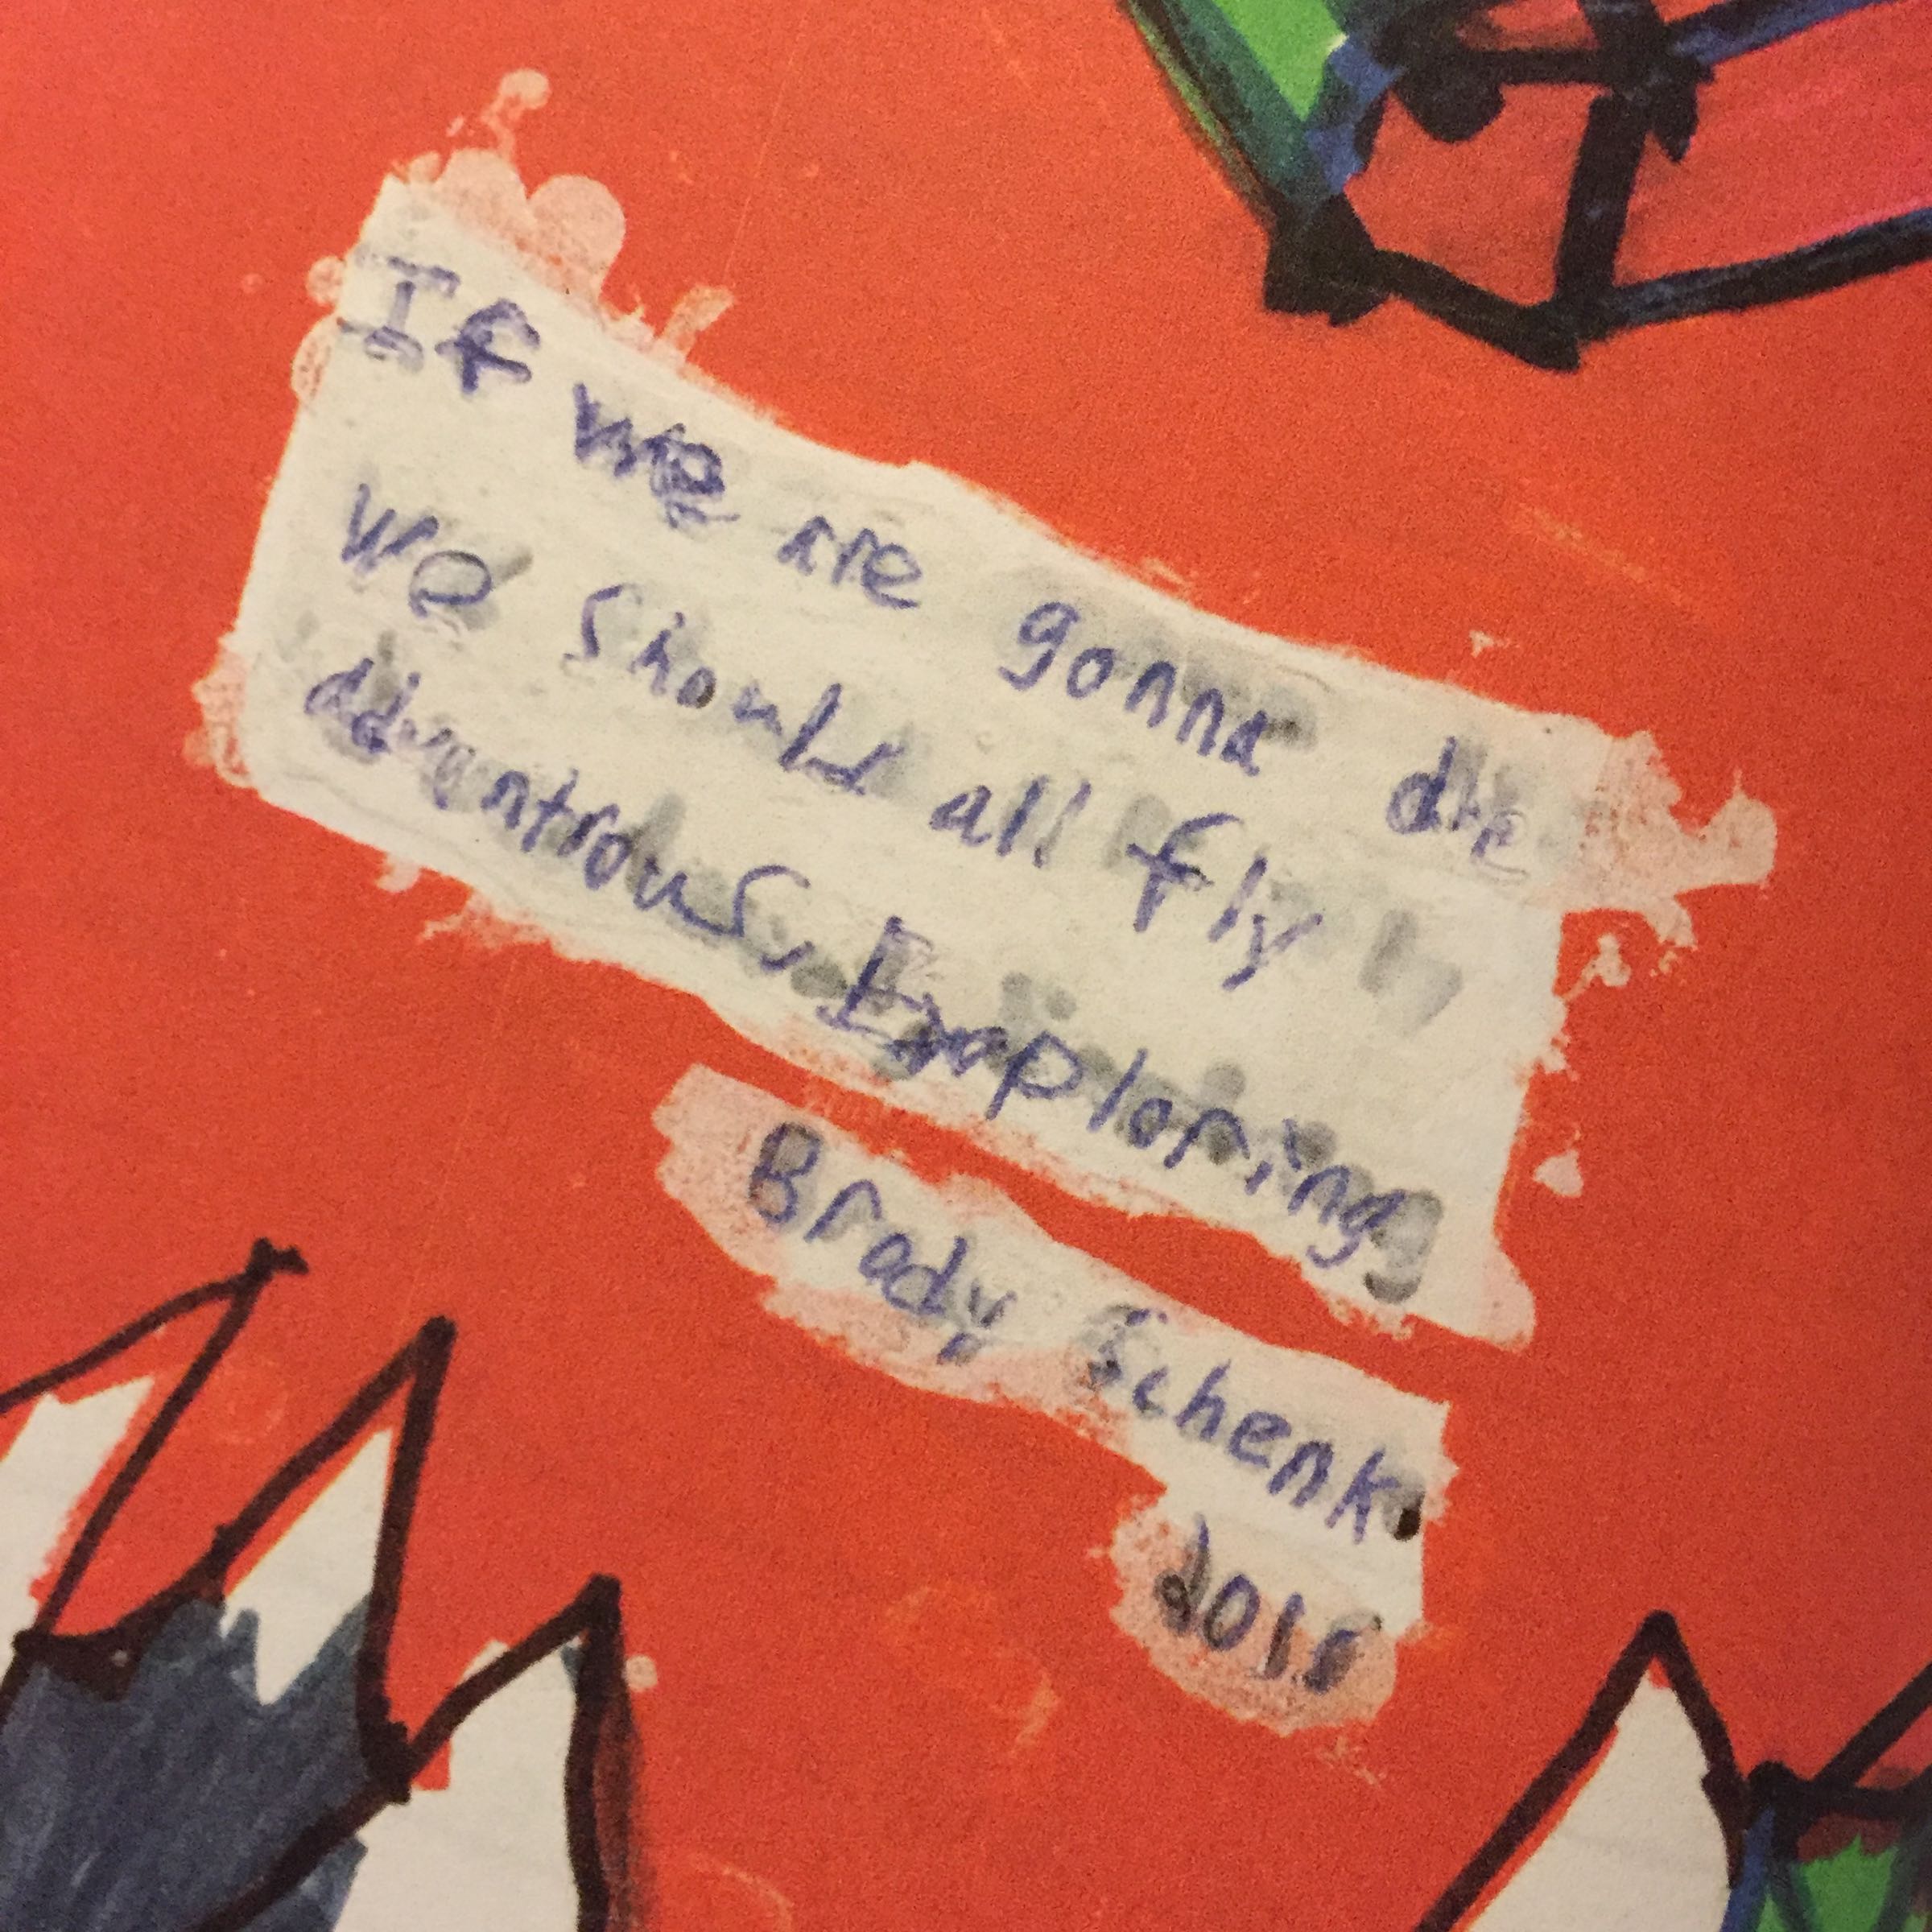 If we are gonna die
we should all fly
adventrous, Exploring
Brady Schenk
2015